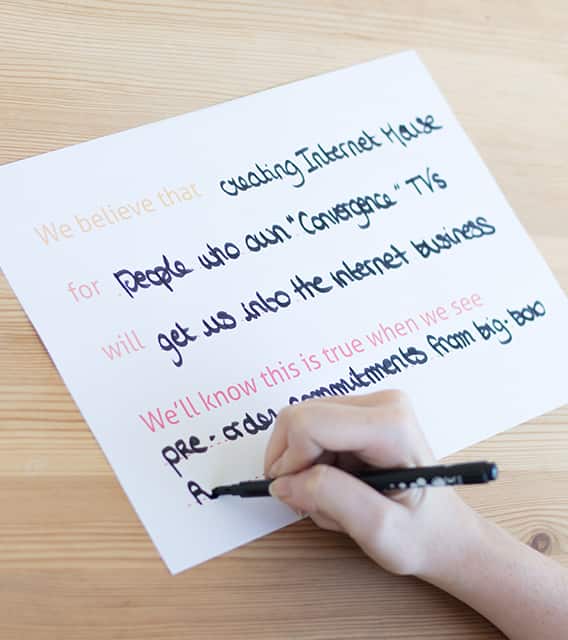 We believe that creating Internet House
for people who own "Convergence" TVs
will get us into the internet business
We'll know this is true when we see
pre-order commitments from big-box
A